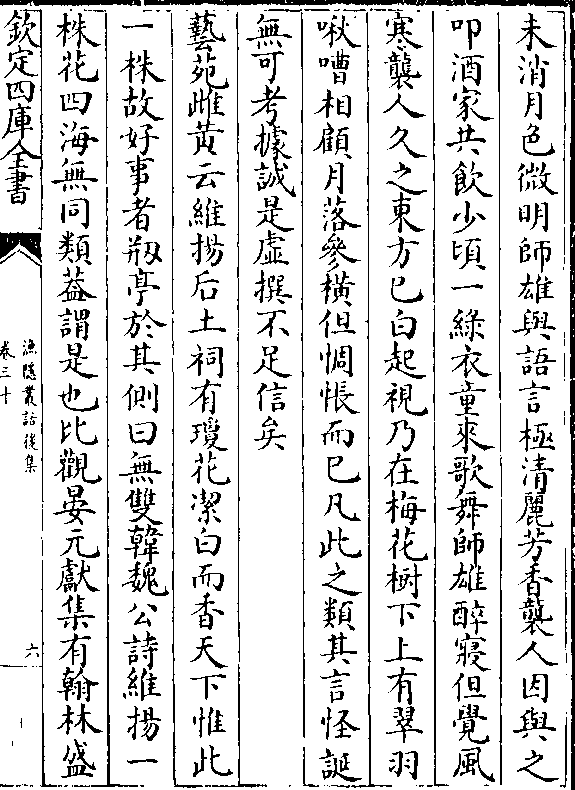 未消月色微明師雄與語言極清麗芳香襲人因與之
叩酒家共飲少頃一綠衣童來歌舞師雄醉寢但覺風
寒襲人久之東方已白起視乃在梅花樹下上有翠羽
啾嘈相顧月落參橫但惆悵而已凡此之類其言怪誕
無可考據誠是虛撰不足信矣
藝苑雌黄云維揚后土祠有瓊花潔白而香天下惟此
一株故好事者剏亭於其側曰無雙韓魏公詩維揚一
株花四海無同類葢謂是也比觀晏元獻集有翰林盛
欽定四庫全書
漁隱叢話後集
卷三十
六